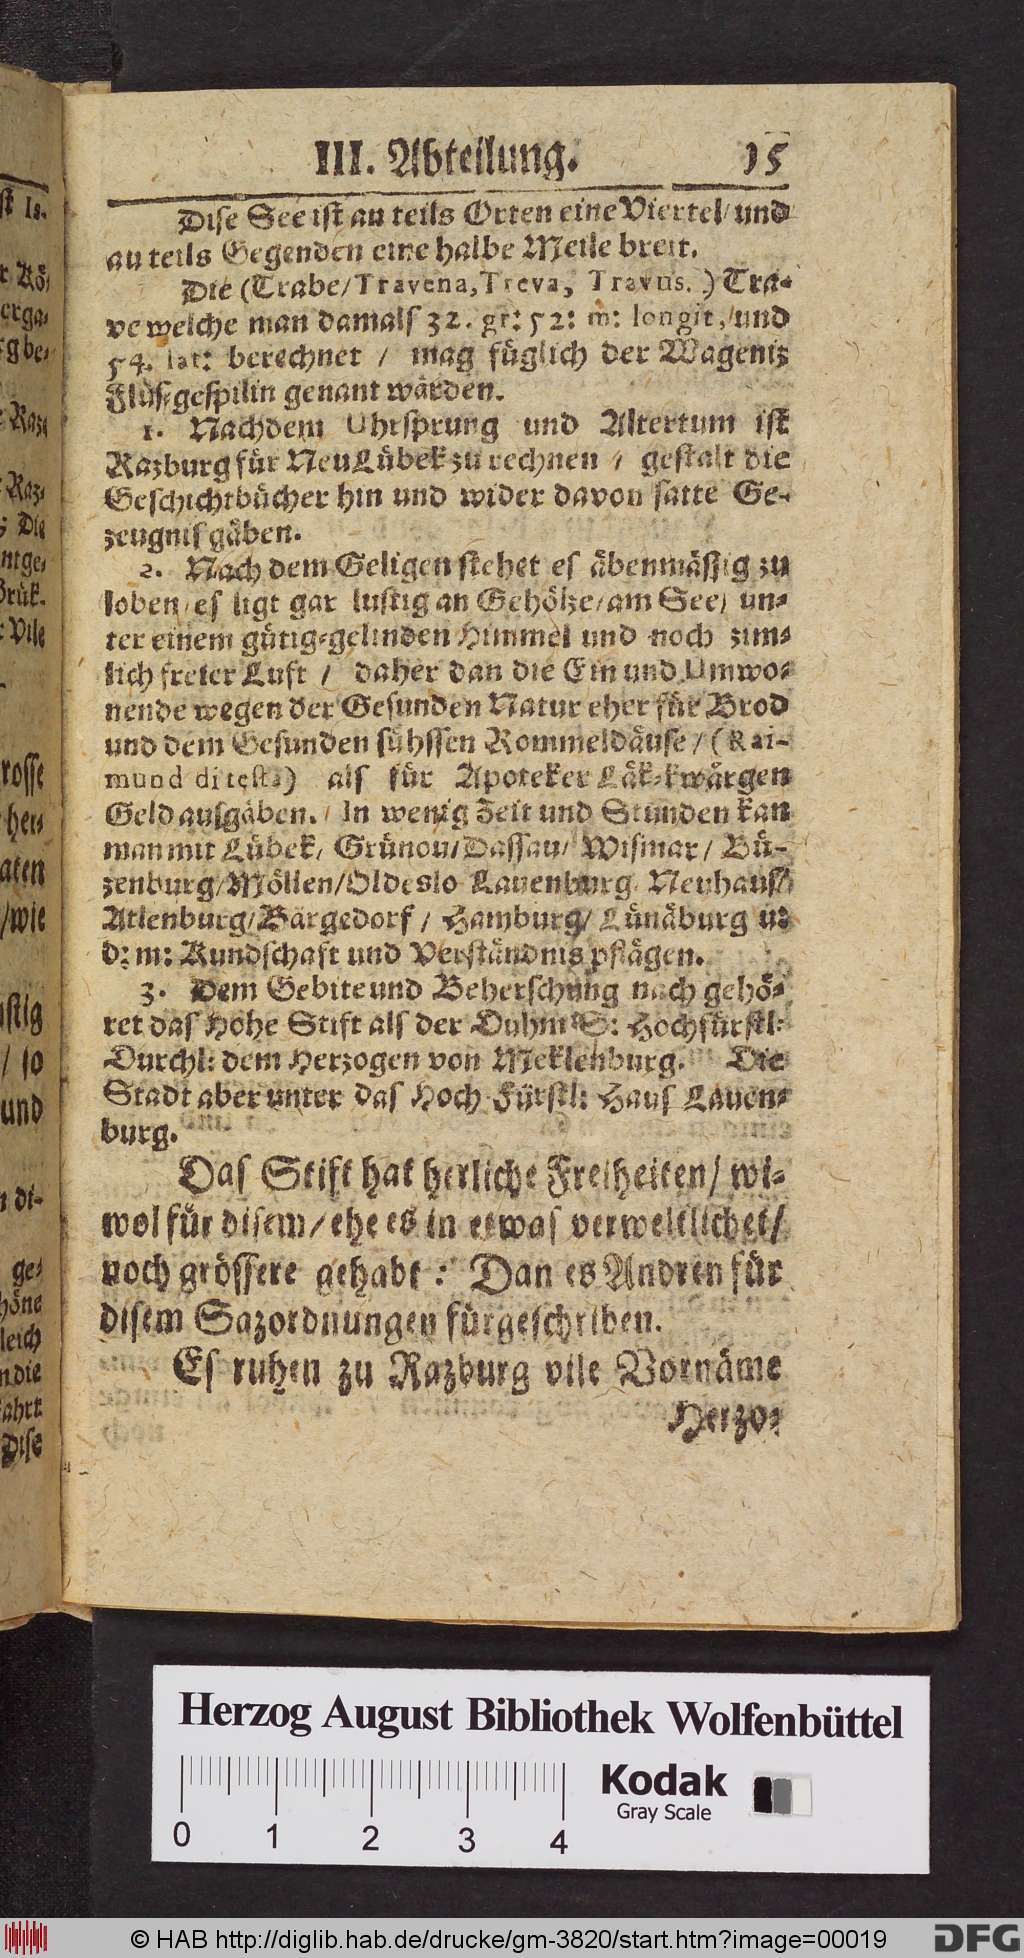 III. Abteilung. 15
Dise See ist an teils Orten eine Viertel/ und
an teils Gegenden eine halbe Meile breit.
Die (Trabe/ Travena, Treva, Travus.) Tra-
ve welche man damals 32. gr: 52: m: longit, /und
54. lat: berechnet / mag füglich der Wageniz
Flus-gespilin genant wärden.
1. Nachdem Uhrsprung und Altertum ist
Razburg für Neu Lübek zu rechnen / gestalt die
Geschichtbücher hin und wider davon satte Ge-
zeugnis gäben.
2. Nach dem Geligen stehet es äbenmässig zu
loben/ es ligt gar lustig an Gehölze/ am See/ un-
ter einem gütig-gelinden Himmel und noch zim-
lich freier Luft / daher dan die Ein und Umwo-
nende wegen der Gesunden Natur eher für Brod
und dem Gesunden sühssen Rommeldäuse / (Rai-
mund di testa) als für Apoteker Läk-kwärgen
Geld ausgäben. / In wenig Zeit und Stunden kan
man mit Lübek/ Grünou/ Dassau/ Wismar/ Bü-
zenburg/ Möllen/ Oldeslo Lauenburg Neuhaus/
Atlenburg/ Bärgedorf / Hamburg/ Lünäburg u:
d: m: Kundschaft und Verständnis pflägen.
3. Dem Gebite und Beherschung nach gehö-
ret das Hohe Stift als der Duhm S: Hochfürstl:
Durchl: dem Herzogen von Meklenburg. Die
Stadt aber unter das Hoch-Fürstl: Haus Lauen-
burg.
Das Stift hat herliche Freiheiten/ wi-
wol für disem/ ehe es in etwas verweltlichet/
noch grössere gehabt: Dan es Andren für
disem Sazordnungen fürgeschriben.
Es ruhen zu Razburg vile Vornäme
Herzo-
Herzog August Bibliothek Wolfenbüttel
Kodak
Gray Scale
0 1 2 3 4
© HAB http://diglib.hab.de/drucke/gm-3820/start.htm?image=00019
DFG